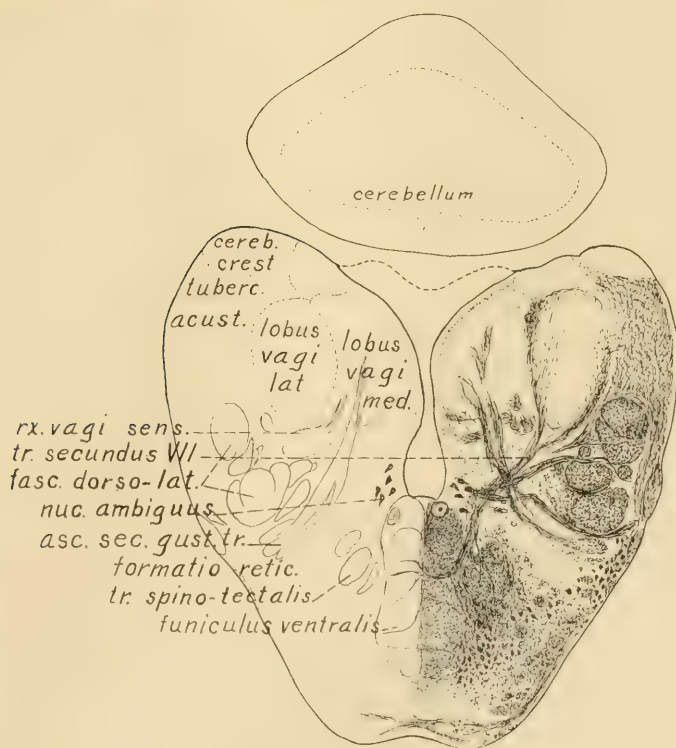 cerebellum
cereb.
crest
tuberc.
acust.
lobus
vagi
lat
lobus
vagi
med.
rx. vagi sens.
tr. secundus WI
fasc. dorso-lat.
nuc. ambiguus
asc. sec. gust. tr.
formatio retic.
tr. spino-tectalis
funiculus ventralis